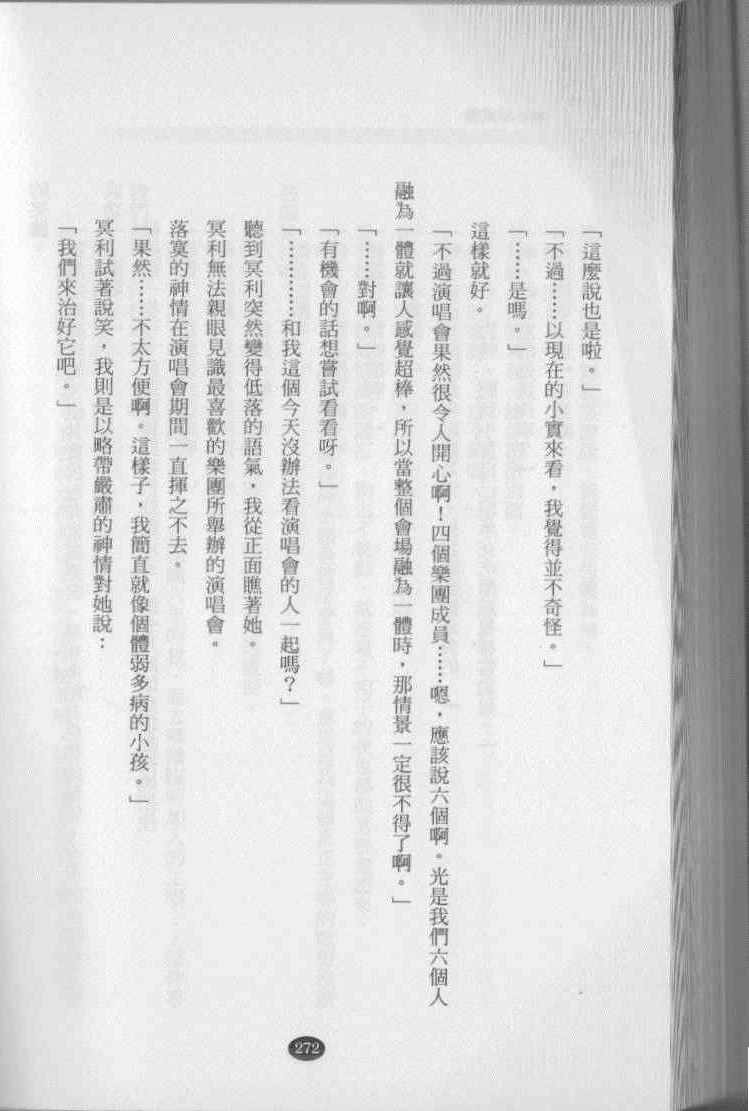 「這麼說也是啦。」
「不過……以現在的小實來看，我覺得並不奇怪。」
「……是嗎。」
這樣就好。
「不過演唱會果然很令人開心啊！四個樂團成員……嗯，應該說六個啊。光是我們六個人
融為一體就讓人感覺超棒，所以當整個會場融為一體時，那情景一定很不得了啊。」
「……對啊。」
「有機會的話想嘗試看看呀。」
「…………和我這個今天沒辦法看演唱會的人一起嗎？」
聽到冥利突然變得低落的語氣，我從正面瞧著她。
冥利無法親眼見識最喜歡的樂團所舉辦的演唱會。
落寞的神情在演唱會期間一直揮之不去。
「果然……不太方便啊。這樣子，我簡直就像個體弱多病的小孩。」
冥利試著說笑，我則是以略帶嚴肅的神情對她說：
「我們來治好它吧。」
272